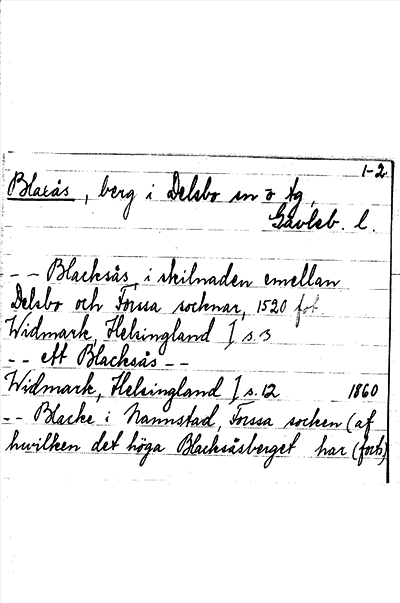 1-2
Blaxås, berg i Delsbo sn o tg,
Gävleb. l.
-- Blacksås, i skilnaden emellan
Delsbo och Forssa socknar, 1520 fot.
Widmark, Helsingland I s. 3
-- ett Blacksås --
Widmark, Helsingland I s. 12 1860
-- Blacke i Nannstad, Forssa socken (af
hwilken det höga Blacksåsberget har (forts)